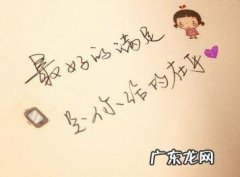 最好的满足
是你给的在乎
广东龙网